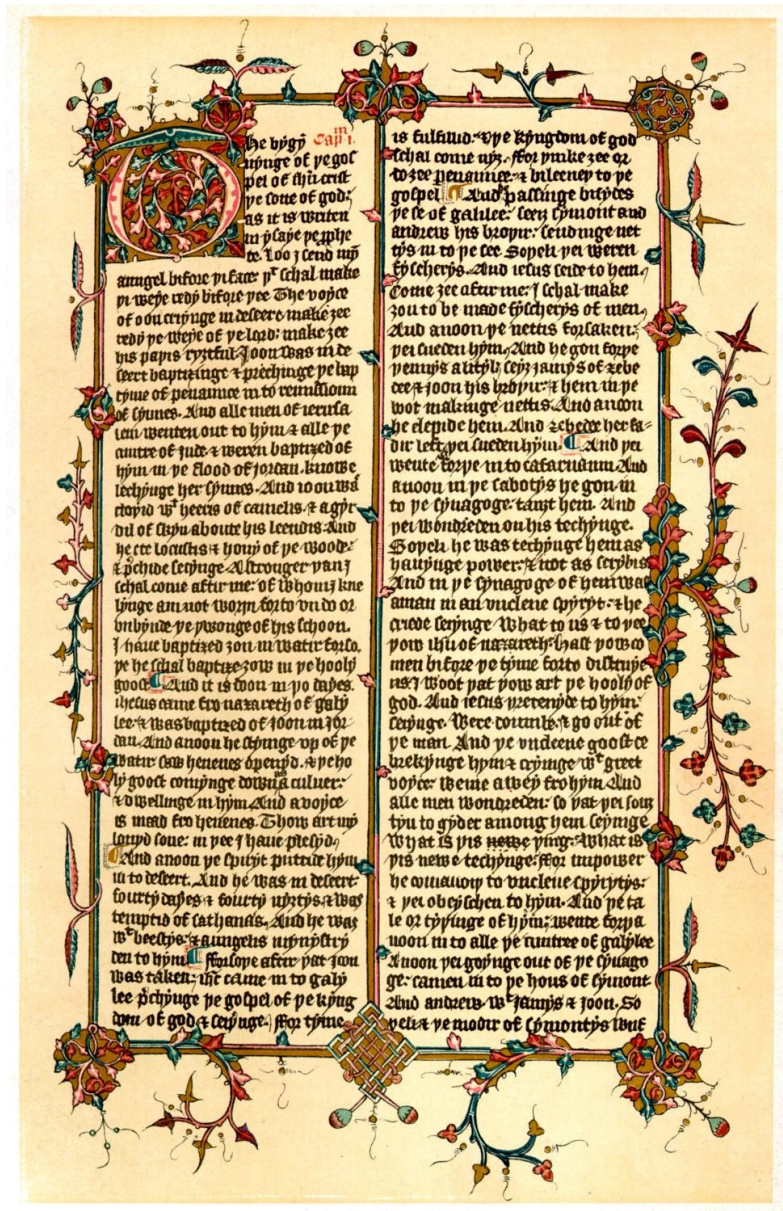 The bygy
Capm 1.
nynge of ye gos
pel of ihu crist
ye sone of god:
as it is writen
in ysaye ye pphe
te. Loo j send myn
aungel bifore yi face: yt schal make
yi weye redy bifore yee The voyce
of oon criynge in deseert: make zee
redy ye weye of ye lord: make zee
his papis ryztful Joon was in de
seert baptizinge & prechinge ye bap
tyme of penaunce in to remissioun
of synnes. And alle men of ierusa
lem wenten out to hym & alle ye
cuntre of jude & weren baptized of
hym in ye flood of jordan. knowe
lechynge her synnes. And ioon was
cloyid wt heeris of camelis & a gyr
dil of skyn aboute his leendis And
he ete locustis & hony of ye wode:
& pchide seiynge A stronger yan j
schal come aftir me: of whom j kne
lynge am not worpi forto vn do or
vnbynde ye ywonge of his schoon.
J haue baptized zou in watir forso.
ye he schal baptize zow in ye hooly
goost And it is doon in yo dayes.
ihesus came fro nazareth of galy
lee & was baptized of joon in jor
dan. And anoon he styinge vp of ye
watir saw heuenes openyd. & ye ho
ly goost comynge doun as a culuer:
& dwellinge in hym And a voyce
is maad fro heuenes. Thow art my
louyd sone: in yee j haue plesyd
And anoon ye spiryt puttide hym
in to desert. And he was in desert
fourty dayes & fourty nyztis & was
temptid of sathanas. And he was
wt beestys: & aungelis mynystry
den to hym. fforsoye aftir yat joon
was taken: ihc came in to galy
lee pchynge ye gospel of ye kyng
dom of god & seiynge ffor tyme
is fulfillid: & ye kyngdom of god
schal come nyz. ffor yinke zee or
do zee penaunce & bileeuey to ye
gospel And passinge bisydes
ye se of galilee: seez symont and
andrew his broyir: sendinge net
tys in to ye see Soyeli yei weren
fyscherys. And iesus seide to hem
Come zee aftir me: J schal make
zou to be made fyscherys of men
And anoon ye nettis forsaken:
yei sueden hym. And he gon forye
yennys a lityl: seyz jamys of zebe
dee & joon his broyir: & hem in ye
boot makinge nettis. And anoon
he clepide hem. And zebedee her fa-
dir left: yei sueden hym. And yei
wente forye in to cafarnaum And
anoon in ye sabotys he gon in
to ye synagoge. tauzt hem. And
yei wondreden on his techynge.
Soyeli he was techynge hem as
hauynge power: & not as scrybis
And in ye synagoge of hem was
a man in an vnclene spyryt: & he
criede seiynge What to us & to yee
yow ihu of nazareth: hast yow co
men bifore ye tyme forto distruye
us: J woot yat yow art ye hooly of
god. And iesus yretenyde to hym:
seiynge. Were doumb: & go out of
ye man And ye vnclene goost de
brekynge hym & cryinge wt greet
voyce: wente awey fro hym And
alle men wondreden: so yat yei souz
tyn to gyder among hem seyinge
What is yis newe ying: What is
yis newe techynge: ffor in power
he comaundiy to vnclene spyrytys:
& yei obeyschen to hym. And ye ta
le or tyyinge of hym: wente forp a
noon in to alle ye cuntree of galylee
Anoon yei goynge out of ye synago
ge: camen in to ye hous of symont
And andrew: wt jamys & joon. So
yeli & ye modir of symontys wyf